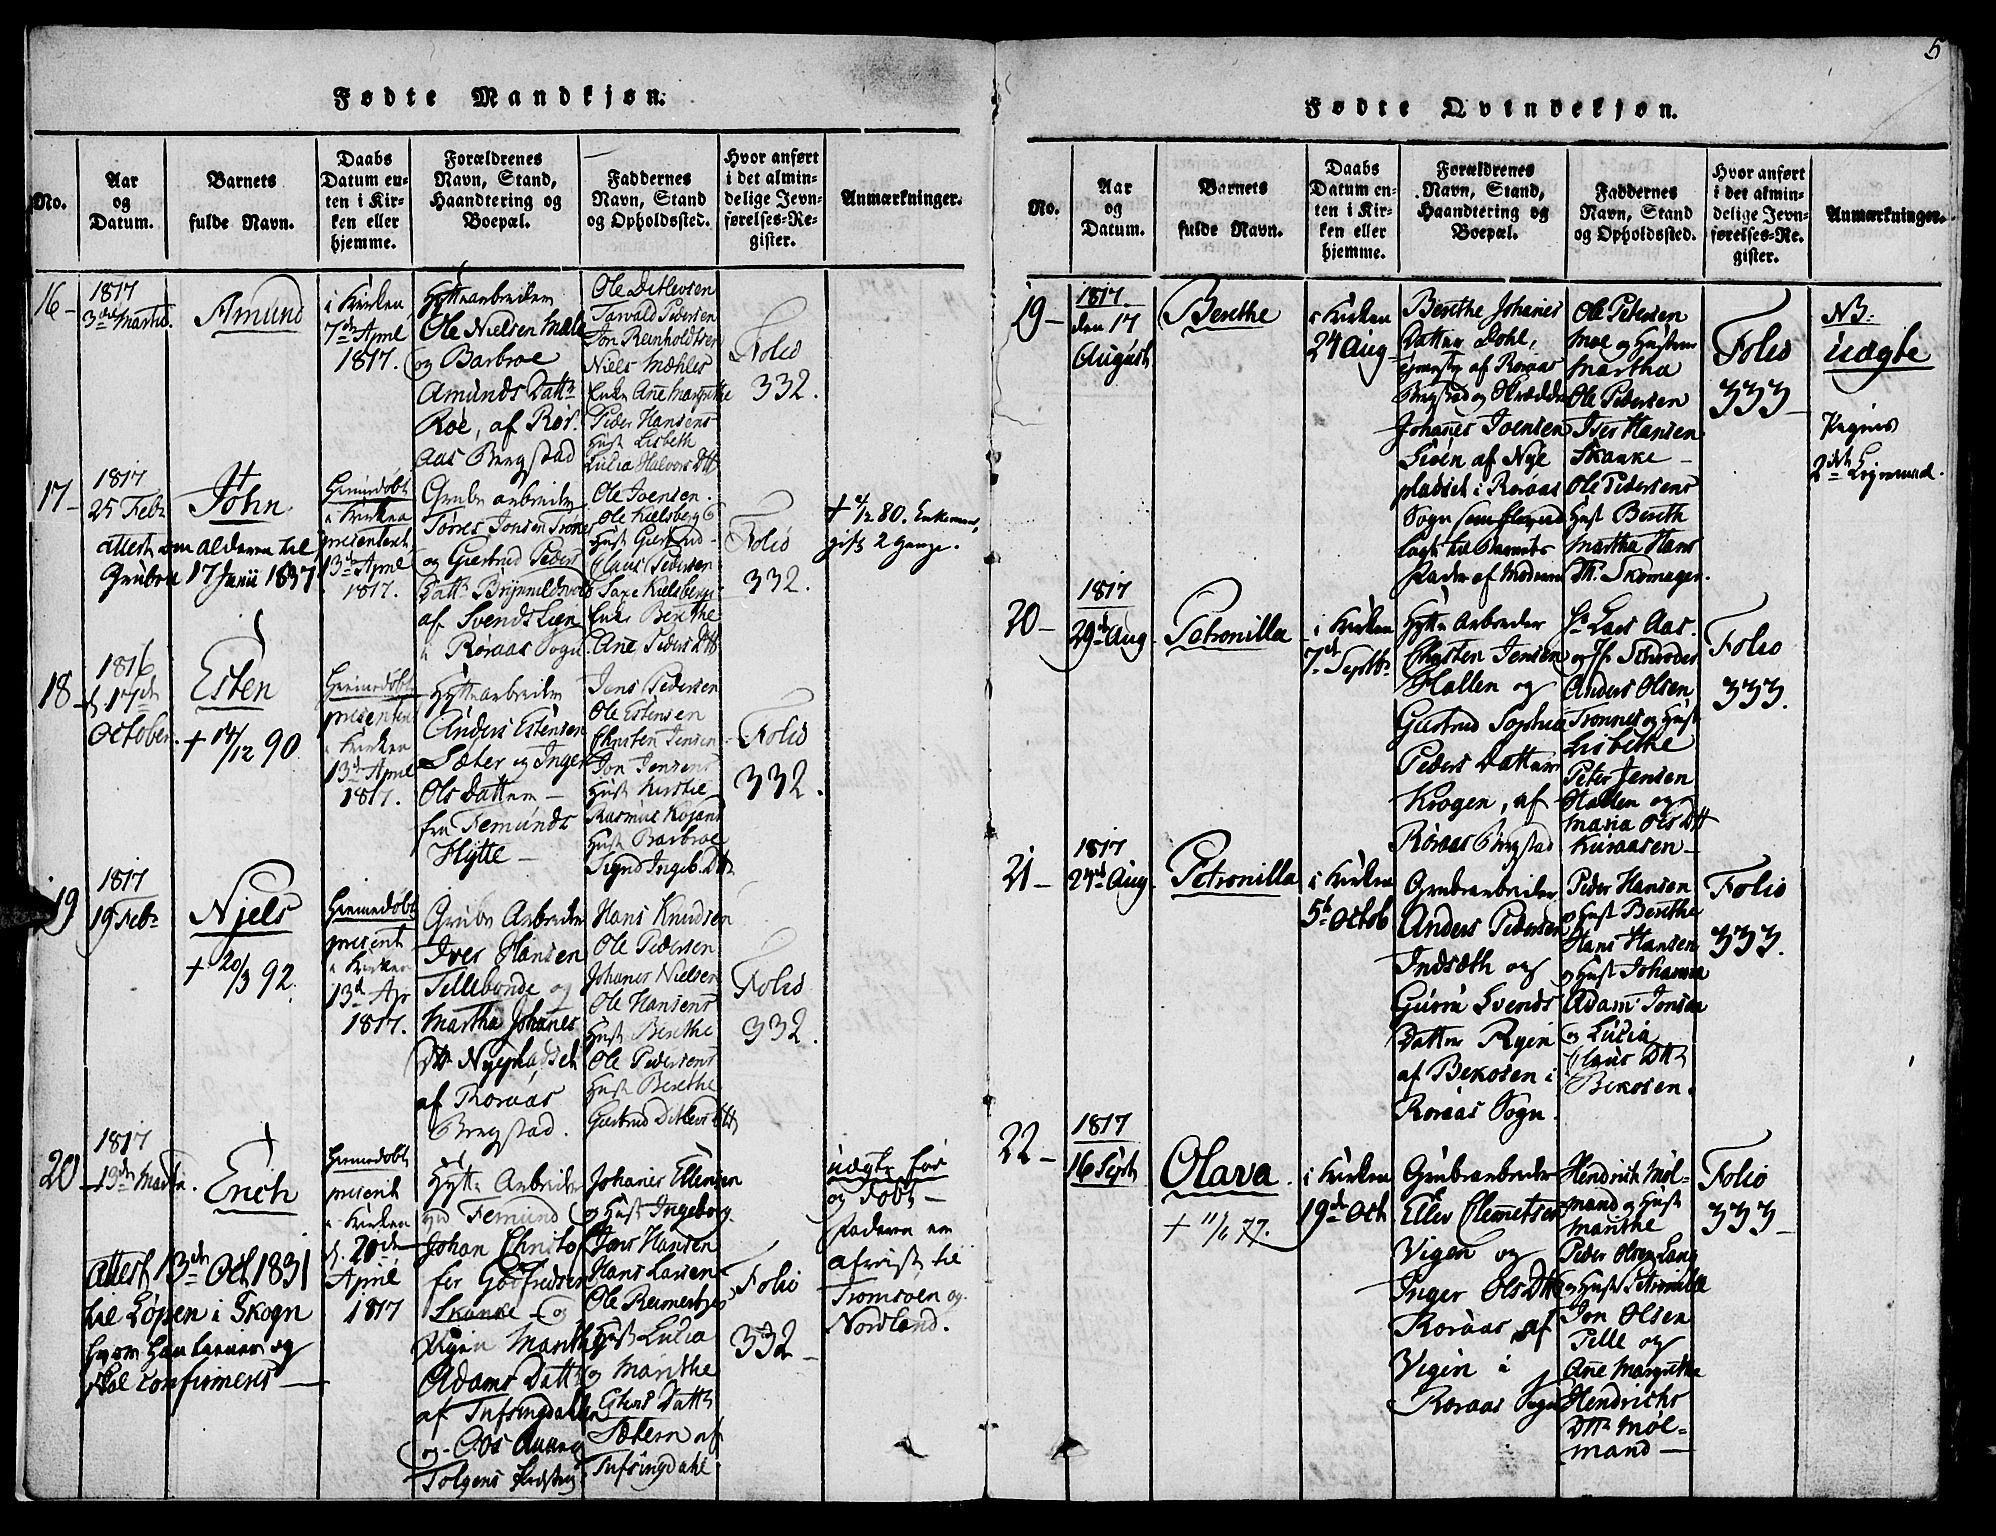 5
Fødte Mandkjøn.
No.
Aar
og
Datum.
Barnets
fulde Navn.
Daabs
Datum en-
ten i Kir-
ken eller
hjemme.
Forældrenes
Navn, Stand,
Haandtering og
Boepæl.
Faddernes
Navn, Stand
og Opholdssted.
Hvor anført
i det almin-
delige Jevn-
førelses-Re-
gister.
Anmærkninger.
16
1817
3die Martii
Amund
i Kirken
7de April
1817.
Hytte arbeider
Ole Nielsen
og Barbroe
Amunds Datt
Roe, af Rør-
aas Bergstad
Ole Ditlevsen
Tarvald Pedersen
Jon Reinholdtsen
Niels Mæhles
Enke Ane Margrethe
Peder Hansens
Hust Lisbeth
Lucia Halvors Dtt
Folio
332.
17
1817
25 Febr
John
attest om alderen til
Gruben 17 Junii 1837
Hiemedøbt
i Kirken
presentert
13de April
1817.
Grube arbeider
Torres Jonsen
og Giertrud Peders
Datt
af Svendslien
i Røraas Sogn
Ole Joensen
Ole Kielsberg
Hust Giertrud
Claus Pedersen
Kielsbergs
Enke Berthe
Ane Peders Dtt
Folio
332.
+ 4/12 80. Enkemand,
gift 2 Gange.
18
1816
d 17de
October
Esten
+ 14/12 90
Hiemedøbt
presenter
i Kirken
13de April
1817.
Hyttearbeider
Anders Estensen
Sæter og Inger
Ols Datter
fra Femunds
Hytte
Jens Pedersen
Ole Estensen
Christen Jensen
Jon Jensens
Hust Kirstie
Rasmus
Hust Barbroe
Sigrid Ingeb. Dtt
Folio
332.
19
1817
19 Febr
Niels
+ 20/3 92.
Hiemedøbt
present
i Kirken
13d Apr
1817.
Grube Arbeider
Iver Hansen
Tillebonde og
Martha Johanes
Dtt Nyepladset
af Roraas
Bergstad.
Hans Knudsen
Ole Pedersen
Johanes Nielsen
Ole Hansens
Hust Berthe
Ole Pedersens
Hust Berethe
Giertrud Ditlevs Dtt
Folio
332.
20
1817
19de Martii
Erich
attest 13de Oct 1831
til Løpen i Skogn
hvor han tiener og
skal confirmeres
Hiemedøbt
present
i Kirken
d. 20de
April
1817
Hytte Arbeider
ved Femund
Johan Christof
fer Godfredsen
Skanke og
Marith
Adams Datt
af Tufsingdalen
og
Tolgens
Johanes Ellensen
og Hust Ingeborg
Jens Hansen
Hans Larsen
Ole
Hust Lucia
og Marithe
Estens Datt
Sætern af
Tufsingdahl
Folio
332
uægte fød
og døbt
Faderen er
afreist til
Tromsøen og
Nordland.
Fødte Qvindekjøn.
No.
Aar
og
Datum.
Barnets
fulde Navn.
Daabs
Datum en-
ten i Kir-
ken eller
hjemme.
Forældrenes
Navn, Stand,
Haandtering og
Boepæl.
Faddernes
Navn, Stand
og Opholdssted.
Hvor anført
i det almin-
delige Jevn-
førelses-Re-
gister.
Anmærkninger.
19
1817.
den 17
August
Berethe
i Kirken
24 Aug
Berethe Johanes
Datter Dohl,
af Røraas
Bergstad og Skrædder
Johanes Joensen
af Nye
pladset i Røraas
Sogn som
lagt til Barnets
Fader af Moderen
Ole Petersen
Moe og Hustrue
Martha
Ole Pedersen
Iver Hansen
Skanke
Ole Pedersens
Hust Bereth
Martha Hans
Dtt. Skomager
Folio
333
NB:
uægte
Pigens
2det Leiermaal.
20
1817
29de Aug
Petronilla
i Kirken
7de Septbr
Hytte Arbeider
Christen Jensen
Hallen og
Giertrud Sophia
Peders Datter
Krogen, af
Røraas Bergstad
Hr Lars Aas.
og Jfr
Anders Olsen
Trønnes og Hust
Lisbethe
Peter Jensen
Hallen og
Maria Ols Dtt
Kuraasen
Folio
333.
21
1817
24de Aug
Petronilla
i Kirken
5te Octob
Grubearbeider
Anders Pedersen
Indsæth og
Guru Svends
Datter Ryen
af Bekosen i
Roraas Sogn.
Peder Hansen
og Hust Berethe
Hans Hansen
og Hust Johanna
Adam Jonsen
og Lucia
Claus Dtt
Bekosen.
Folio
333.
22
1817
16 Sept
Olava
+ 11/6 77.
i Kirken
19de Oct
Grubearbeider
Ellev Clemetsen
Vigen og
Inger Ols Dtt
Roraas af
Vigen i
Roraas Sogn
Hendrich Møl-
mand og Hust
Marithe
Peder Olsen Lang
og Hust Petronille
Jon Olsen
Pelle og
Ane Margrethe
Hendrichs
Dtt Møl-
mand
Folio
333